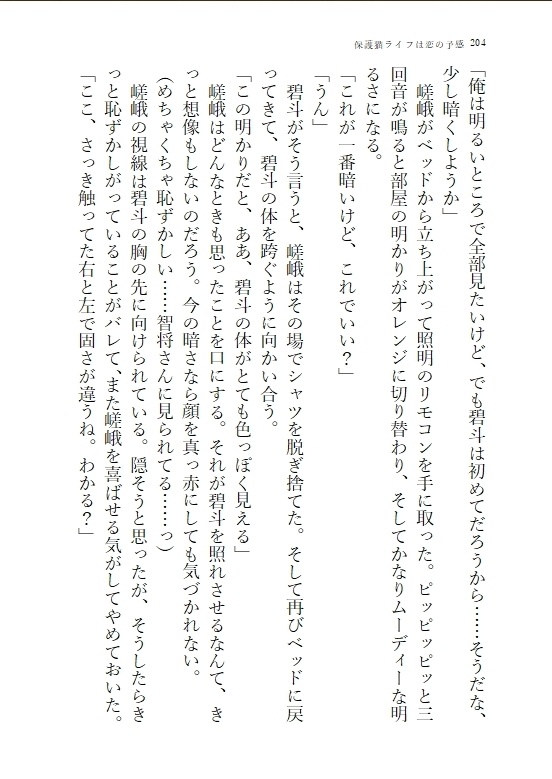 保護猫ライフは恋の予感 204
「俺は明るいところで全部見たいけど、でも碧斗は初めてだろうから……そうだな、
少し暗くしようか」
嵯峨がベッドから立ち上がって照明のリモコンを手に取った。ピッピッピッと三
回音が鳴ると部屋の明かりがオレンジに切り替わり、そしてかなりムーディーな明
るさになる。
「これが一番暗いけど、これでいい?」
「うん」
碧斗がそう言うと、嵯峨はその場でシャツを脱ぎ捨てた。そして再びベッドに戻
ってきて、碧斗の体を跨ぐように向かい合う。
「この明かりだと、ああ、碧斗の体がとても色っぽく見える」
嵯峨はどんなときも思ったことを口にする。それが碧斗を照れさせるなんて、き
っと想像もしないのだろう。今の暗さなら顔を真っ赤にしても気づかれない。
(めちゃくちゃ恥ずかしい……智将さんに見られてる……っ)
嵯峨の視線は碧斗の胸の先に向けられている。隠そうと思ったが、そうしたらき
っと恥ずかしがっていることがバレて、また嵯峨を喜ばせる気がしてやめておいた。
「ここ、さっき触ってた右と左で固さが違うね。わかる?」